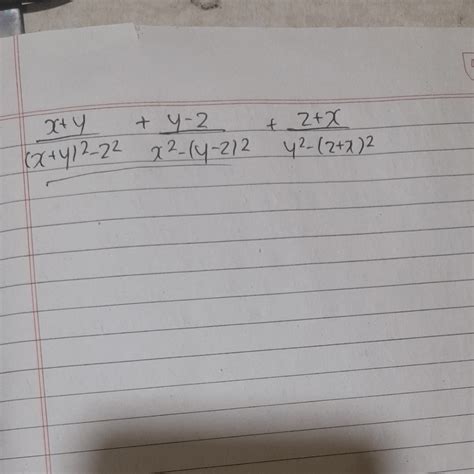 x+y/(x+y)²-z² + y-z/x²-(y-z)² + z+x/y²-(z+x)²